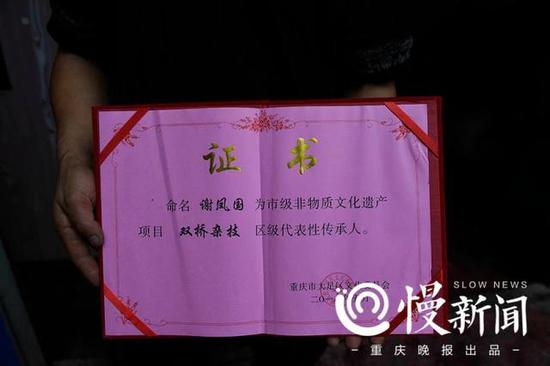 证书
命名 谢凤国 为市级非物质文化遗产
项目 双桥杂技 区级代表性传承人。
重庆市大足区文化委员会
二〇一
月
慢新闻
SLOW NEWS
重庆晚报出品